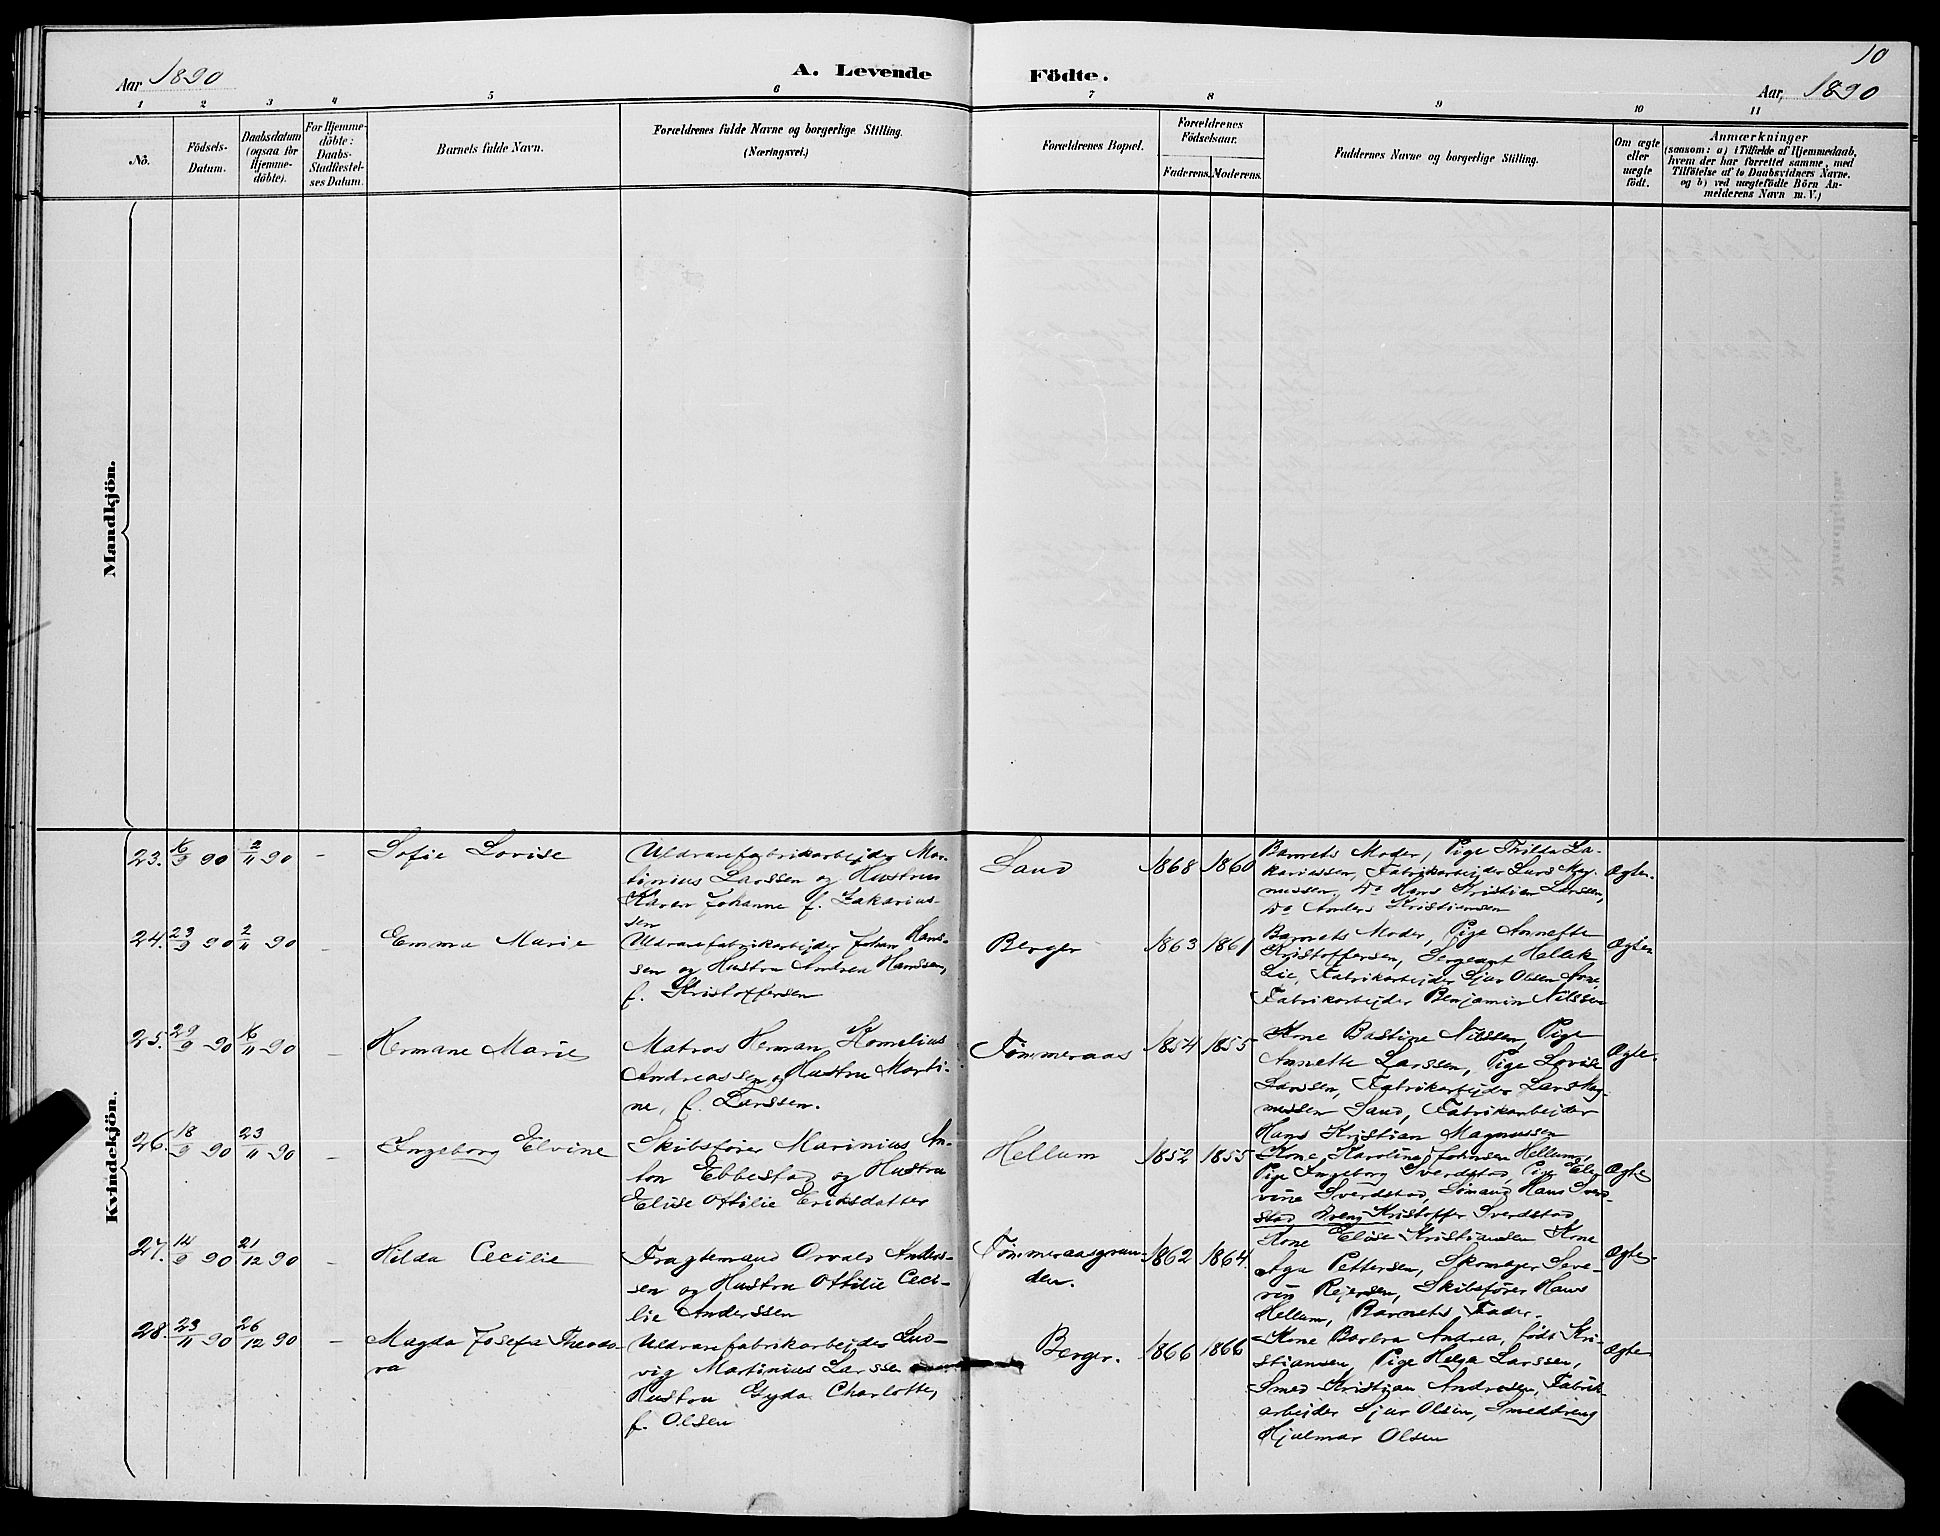 10
Aar 1890
A. Levende
Födte.
Aar, 1890
1 2 3 4 5 6 7 8 9 10 11
Nö.
Födsels-
Datum.
Daabsdatum
(ogsaa for
Hjemme-
döbte).
For Hjemme-
döbte:
Daabs-
Stadfæstel-
ses Datum.
Barnets fulde Navn.
Forældrenes fulde Navne og borgerlige Stilling.
(Næringsvei.)
Forældrenes Bopæl.
Forældrenes
Födselsaar.
Faderens. Moderens.
Faddernes Navne og borgerlige Stilling.
Om ægte
eller
uægte
født.
Anmærkninger
(saasom: a) i Tilfælde af Hjemmedaab,
hvem der har forrettet samme, med
Tilföielse af to Daabsvidners Navne.
og b) ved uægtefödte Börn An-
melderens Navn m. V.)
Mandkjön.
Kvindekjön.
23. 16/9 90 2/11 90 –
Sofie Lovise
Uldvarefabrikarbejder Mar-
tinius Larssen og Hustru
Karen Johanne f. Zakarias-
sen
Sand
1868 1860
Barnets Moder, Pige Thilda Za-
kariassen, Fabrikarbejder Lars Mag-
nussen, Do Hans Kristian Larssen,
Do Anders Kristiansen
Ægte.
24. 23/9 90 2/11 90 –
Emma Marie
Uldvarefabrikarbejder Johan Hans-
sen og Hustru Andrea Hanssen,
f. Kristoffersen
Berger
1863 1861
Barnets Moder, Pige Annette
Kristoffersen, Sergeant Hellek
Lie, Fabrikarbejder Sjur Olsen
Fabrikarbejder Benjamin Nilssen
Ægte
25. 29/9 90 16/11 90 –
Hermane Marie
Matros Herman Kornelius
Andreassen og Hustru Marti-
ne, f. Larssen.
Tømmeraas
1854 1855
Kone Bastine Nilssen, Pige
Annette Larssen, Pige Lovise
Larssen, Fabrikarbejder Lars Mag-
nussen Sand, Fabrikarbejder
Hans Kristian Magnussen
Ægte.
26. 18/9 90 23/11 90 –
Ingeborg Elvine
Skibsfører Marinius An-
ton Ebbestad og Hustru
Elise Othilie Eriksdatter
Hellum
1852 1855
Kone Karoline Johnsen Hellum,
Pige Ingeborg Sverdstad, Pige El-
vine Sverdstad, Sømand Hans Sverd-
stad, Dreng Kristoffer Sverdstad
Ægte
27. 14/9 90 21/12 90 –
Hilda Cecilie
Fragtemand Osvald Anders-
sen og Hustru Othilie Ceci-
lie Anderssen
Tømmeraasgrun-
den.
1862 1864.
Kone Elise Kristiansen Kone
Aga Pettersen, Skomager Seve-
rin Rejersen, Skibsfører Hans
Hellum, Barnets Fader.
Ægte.
28. 23/11 90 26/12 90 –
Magda Josefa Theodo-
ra
Uldvarefabrikarbejder Lud-
vig Martinius Larssen
Hustru Gyda Charlotte,
f. Olsen
Berger.
1866 1866
Kone Barbra Andrea, født Kri-
stiansen, Pige Helga Larssen,
Smed Kristian Andresen, Fabrik-
arbejder Sjur Olsen, Smeddreng
Hjalmar Olsen
Ægte